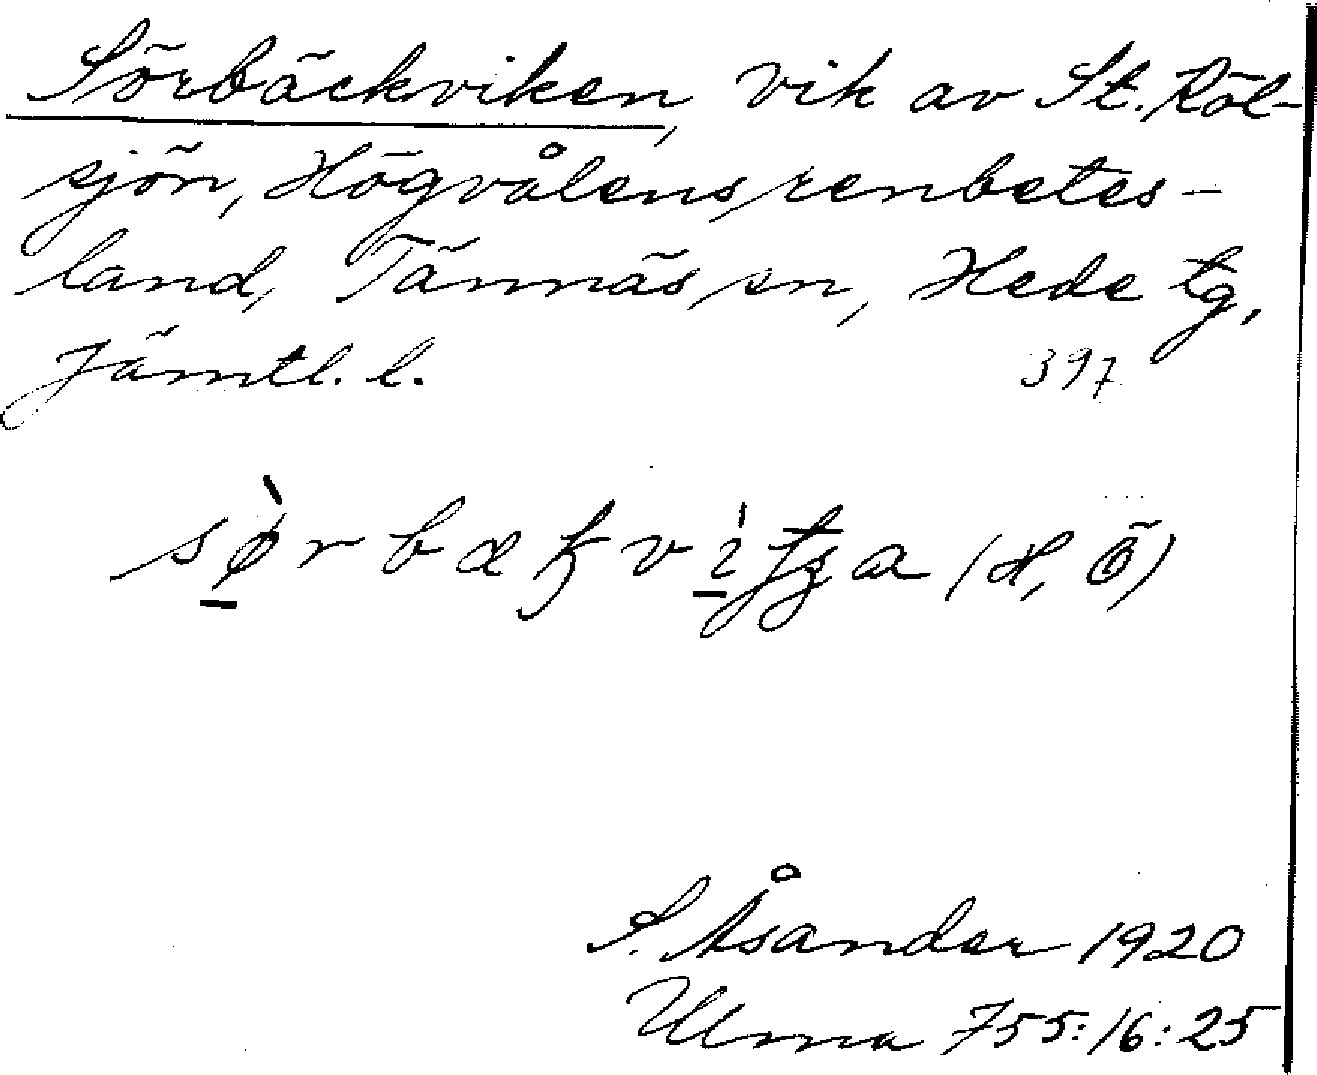 Sörbäckviken, vik av St. Röl-
sjön, Högvålens renbetes-
land, Tännäs sn, Hede tg,
Jämtl. l.
397
(H, Ö)
S. Åsander 1920
Ulma 755:16:25